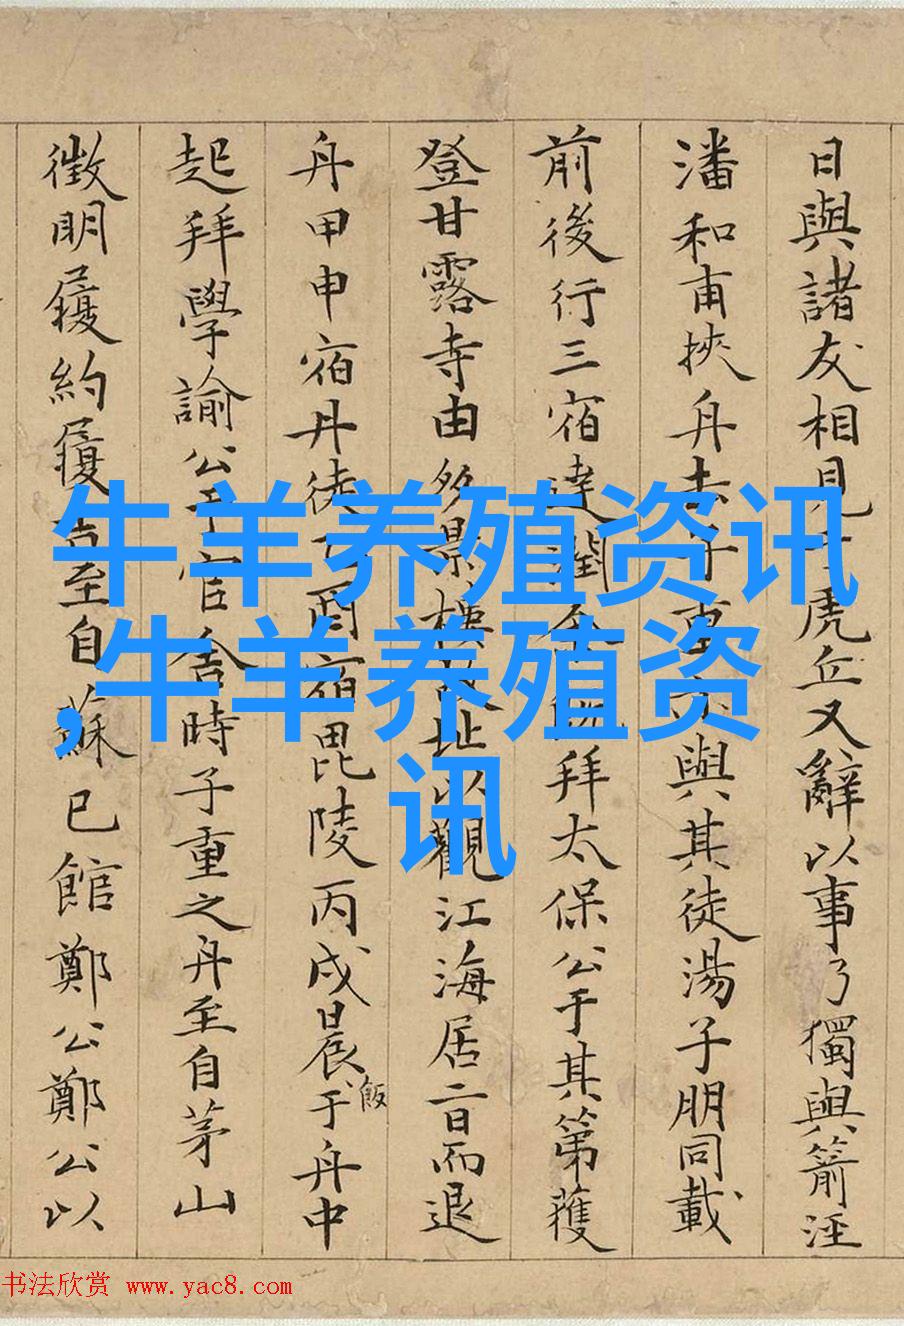 日與諸友相見于虎丘又辭以事乃獨與箭涇
潘和甫挾舟去子重亦與其徒湯子朋同載
前後行三宿達潤余拜太保公于其第獲
登甘露寺由多景樓故址以觀江海居二日而退
舟甲申宿丹徒乙酉宿毘陵丙戌晨飯于舟中
起拜學諭公于官舍時子重之舟至自茅山
徵明履約履吉至自蘇已館鄭公鄭公以
牛羊养殖资讯
,牛羊养殖资
讯
书法欣赏 www.yac8.com